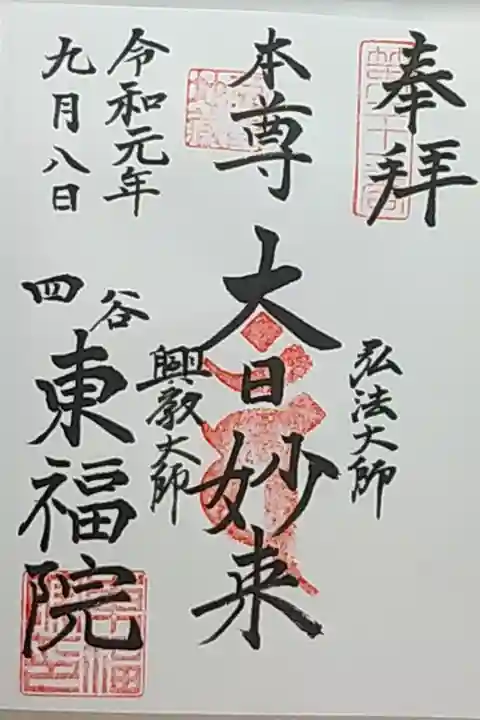 奉拝
弘法大師
本尊 大日妙来
興教大師
令和元年
九月八日
四谷
東福院